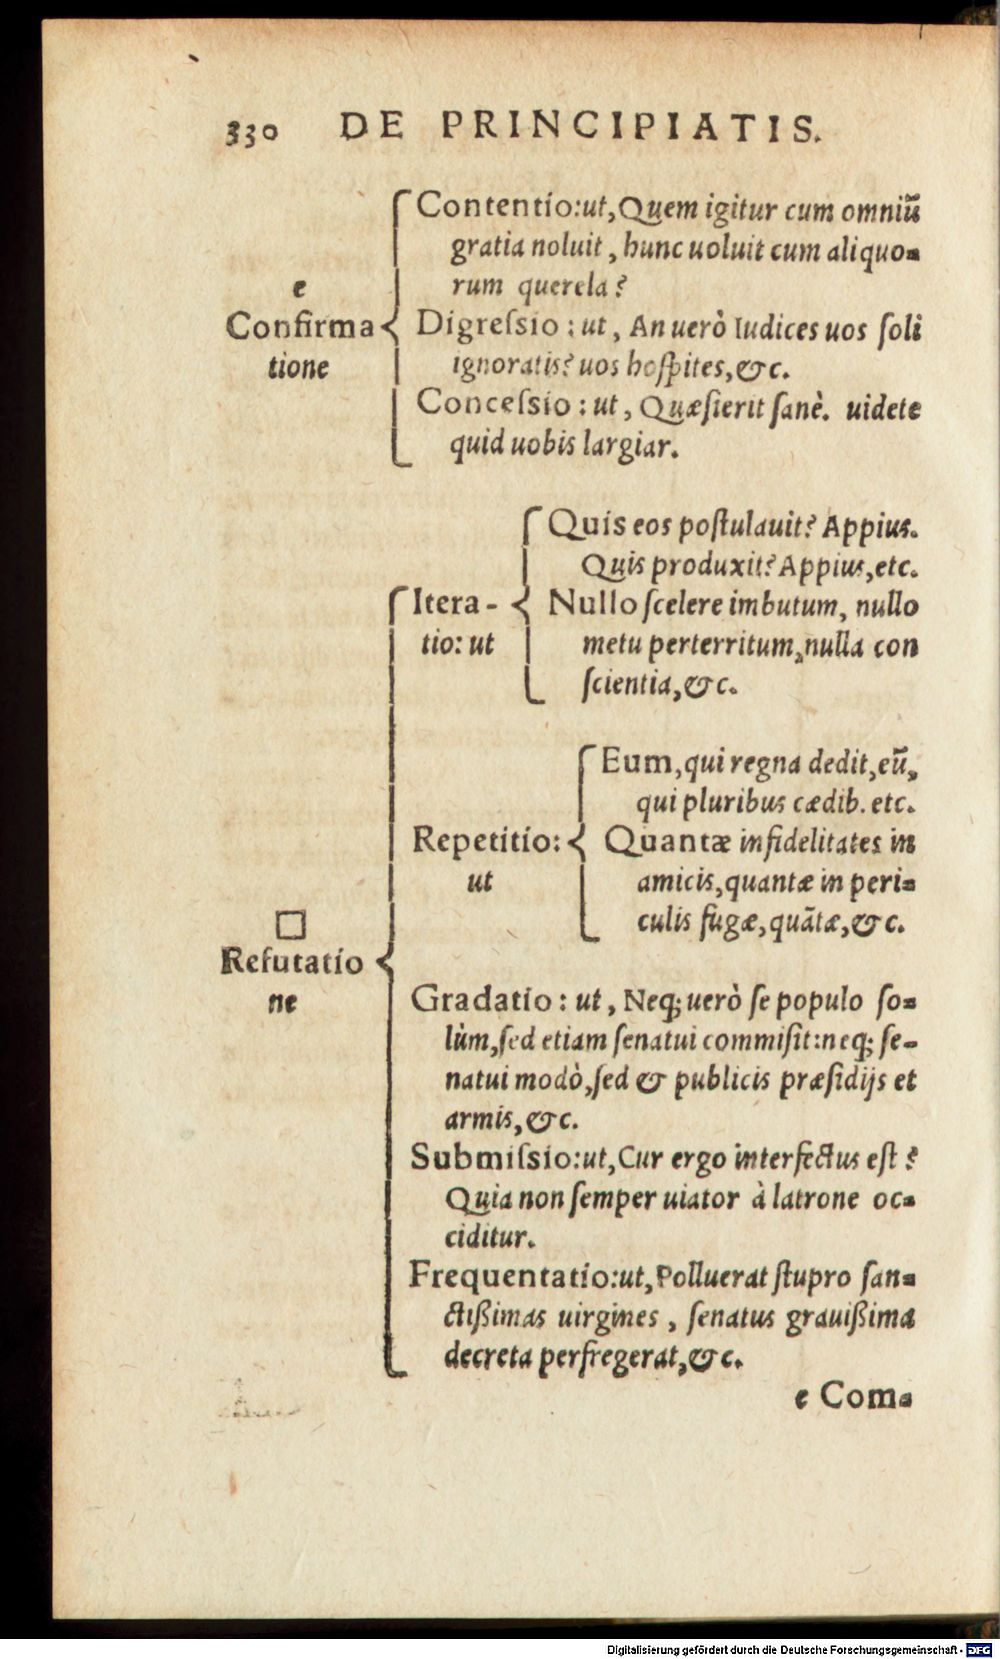 330 DE PRINCIPIATIS.
Contentio:ut,Quem igitur cum omniũ
gratia noluit, hunc uoluit cum aliquo-
rum querela?
e
Confirma
tione
Digreſsio: ut, An uerò Iudices uos ſoli
ignoratis? uos hoſpites,&c.
Conceſsio: ut, Quæſierit ſanè. uidete
quid uobis largiar.
Quis eos poſtulauit? Appius.
Quis produxit? Appius,etc.
Itera-
tio: ut
Nullo ſcelere imbutum, nullo
metu perterritum,nulla con
ſcientia,&c.
Eum,qui regna dedit,eũ,
qui pluribus cædib. etc.
Repetitio:
ut
Quantæ infidelitates in
amicis,quantæ in peri-
culis fugæ,quãtæ,&c.
□
Refutatio
ne
Gradatio: ut, Neq; uerò ſe populo ſo-
lùm,ſed etiam ſenatui commiſit:neq; ſe-
natui modò,ſed & publicis præſidijs et
armis,&c.
Submiſsio:ut,Cur ergo interfectus eſt?
Quia non ſemper uiator à latrone oc-
ciditur.
Frequentatio:ut,Polluerat ſtupro ſan-
ctißimas uirgines, ſenatus grauißima
decreta perfregerat,&c.
e Com-
Digitalisierung gefördert durch die Deutsche Forschungsgemeinschaft - DFG